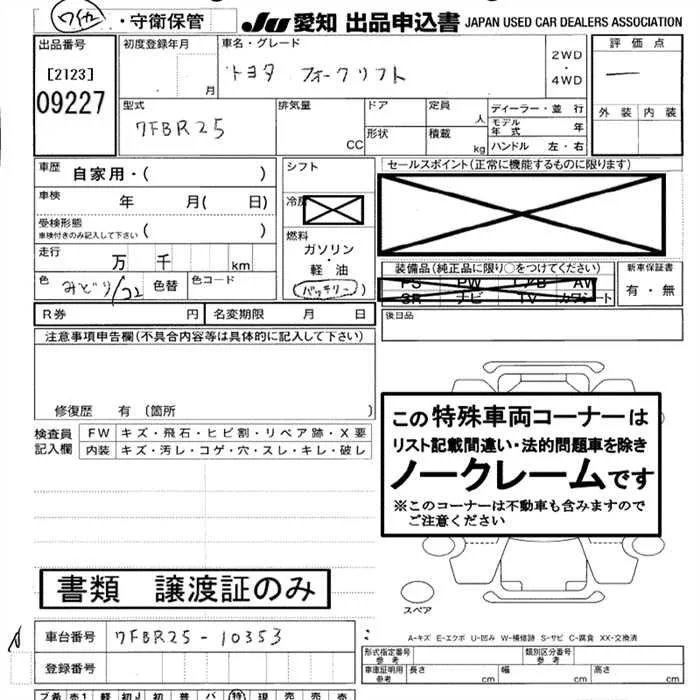 ・守衛保管
JU 愛知 出品申込書 JAPAN USED CAR DEALERS ASSOCIATION
出品番号 初度登録年月 車名・グレード 評価点
[2123] 月 トヨタ フォークリフト 2WD・4WD 一
09227 型式 排気量 ドア 定員 人 ディーラー・並行 外装 内装
7FBR25 CC 形状 積載 kg モデル年式 年
ハンドル 左・右
車歴 自家用・( ) シフト セールスポイント(正常に機能するものに限ります)
車検 年 月( 日)
受検形態 ( )
車検付きのみ記入して下さい
冷房
燃料
ガソリン・軽油
バッテリー
走行 万 千 km
装備品(純正品に限り○をつけてください) 新車保証書
PS PW エアB AW 有・無
SR ナビ TV カワシート
色 みどり/コエ 色替 色コード
R券 円 名変期限 月 日 後日品
注意事項申告欄(不具合内容等は具体的に記入して下さい)
修復歴 有 〔箇所 〕
検査員記入欄 FW キズ・飛石・ヒビ割・リペア跡・X要
内装 キズ・汚レ・コゲ・穴・スレ・キレ・破レ
この特殊車両コーナーは
リスト記載間違い・法的問題車を除き
ノークレームです
※このコーナーは不動車も含みますので
ご注意ください
書類 譲渡証のみ
スペア
A-キズ E-エクボ U-凹み W-補修跡 S-サビ C-腐食 XX-交換済
車台番号 7FBR25-10353 形式指定番号 参考 類別区分番号 参考
登録番号 車庫証明用 参考 長さ cm 幅 cm 高さ cm